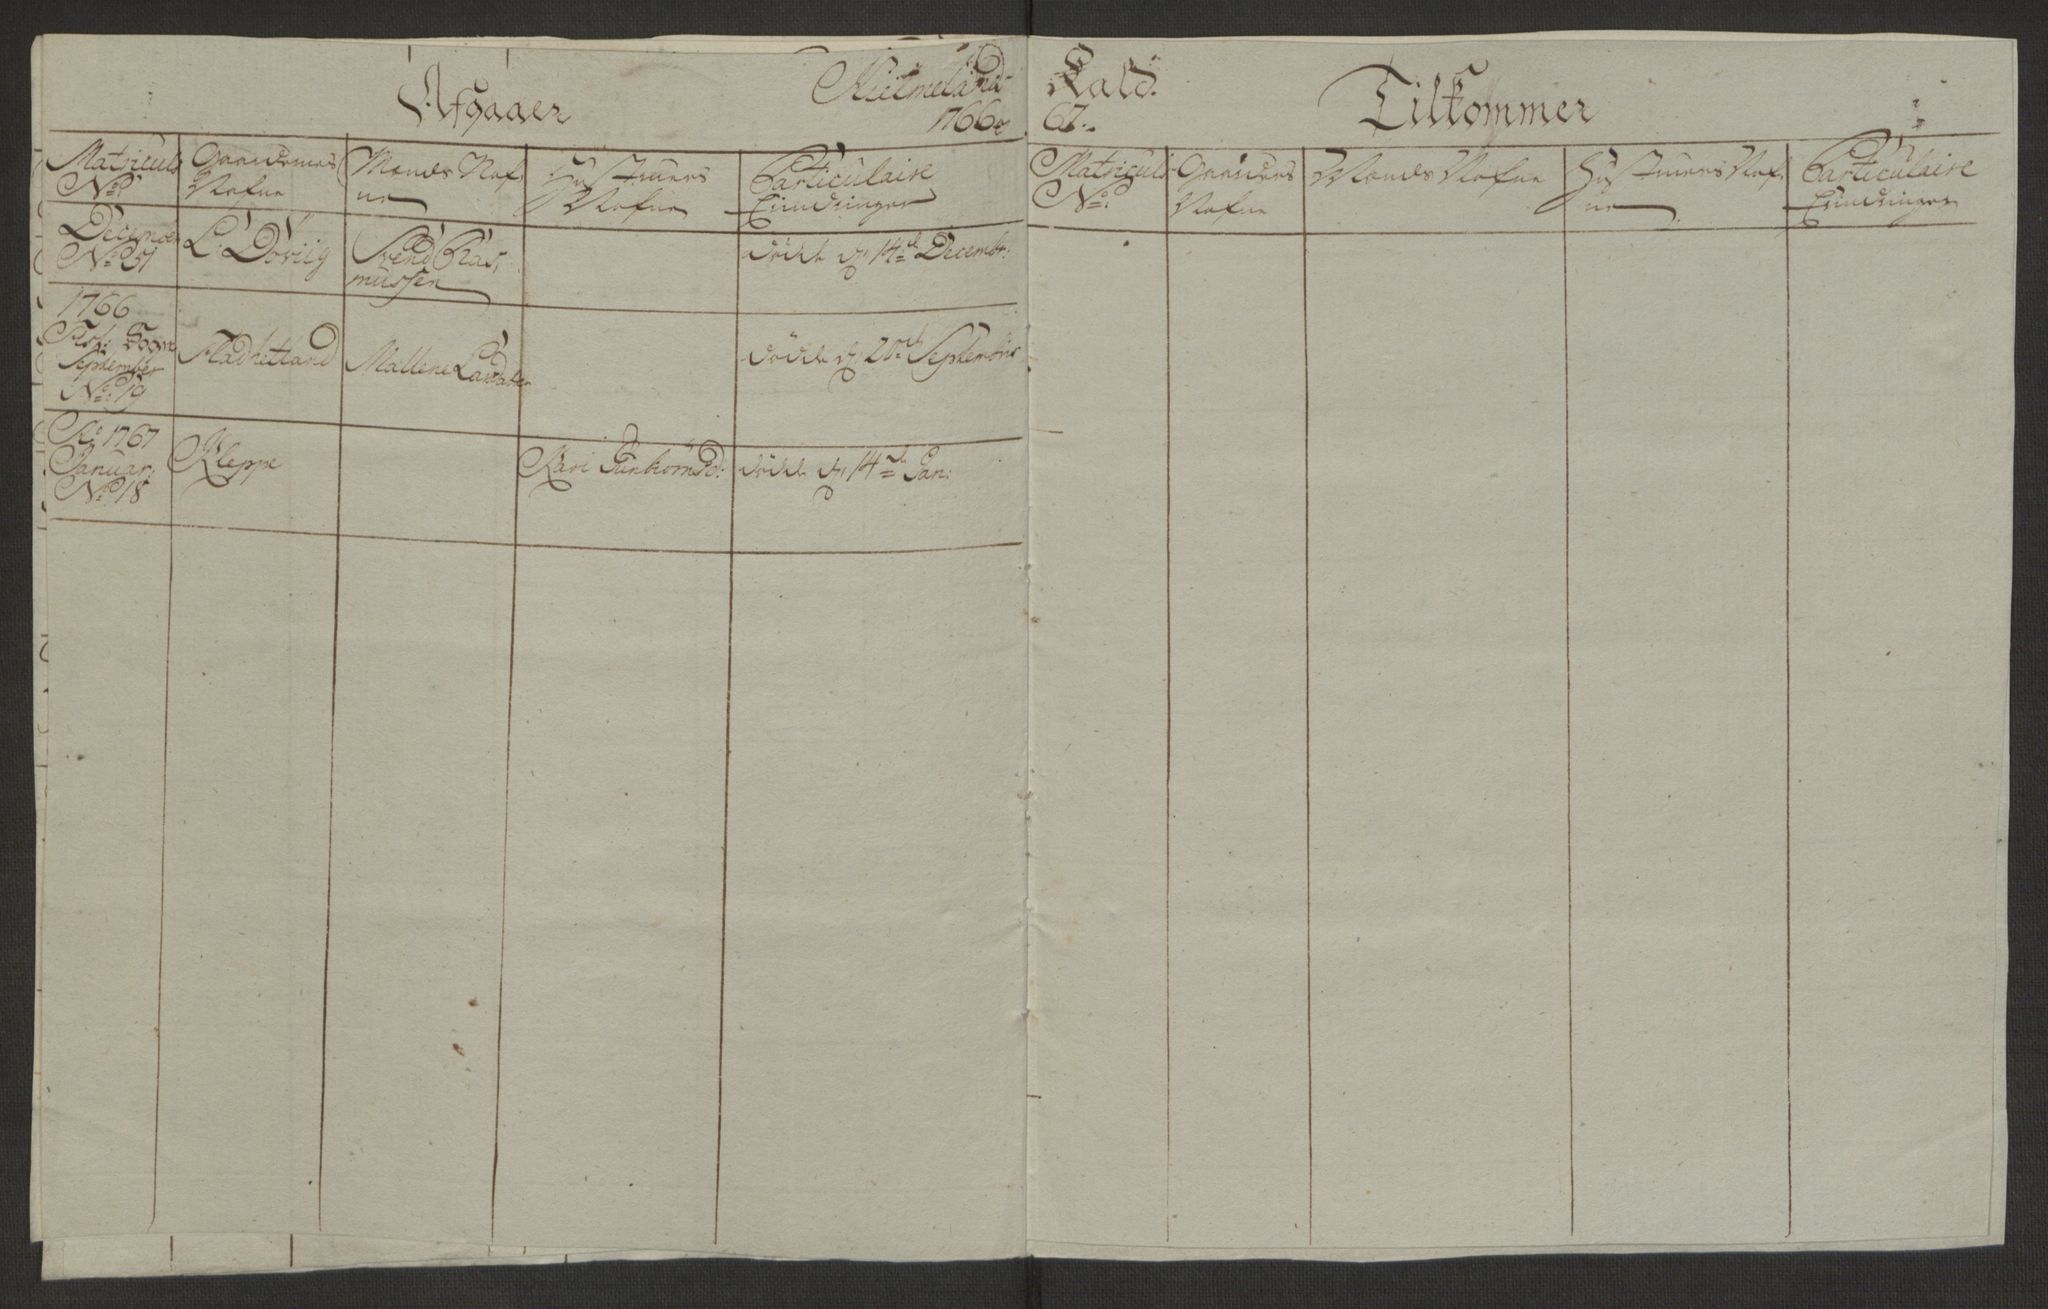 Afgaaer
Hielmeland
1766 &
Kald.
67.
Tilkommer
Matriculs
No:
Gaardernes
Nafne
Mends Naf-
ne
Hustruers
Nafne
Particulaire
Erindringer
Decembr
No: 51
L: Döviig
Svend Ras-
mussen
döde d. 14de Decembr:
1766
Sogn
September
No: 19
Fladhetland
Mallene
döde d. 20de Septembr
Ao: 1767
Januar:
No: 18
Kleppe
Kari
döde d. 14de Jan:
Matriculs
No:
Gaarders
Nafne
Mends Nafne
Hustruers Naf-
ne
Particulaire
Erindringer